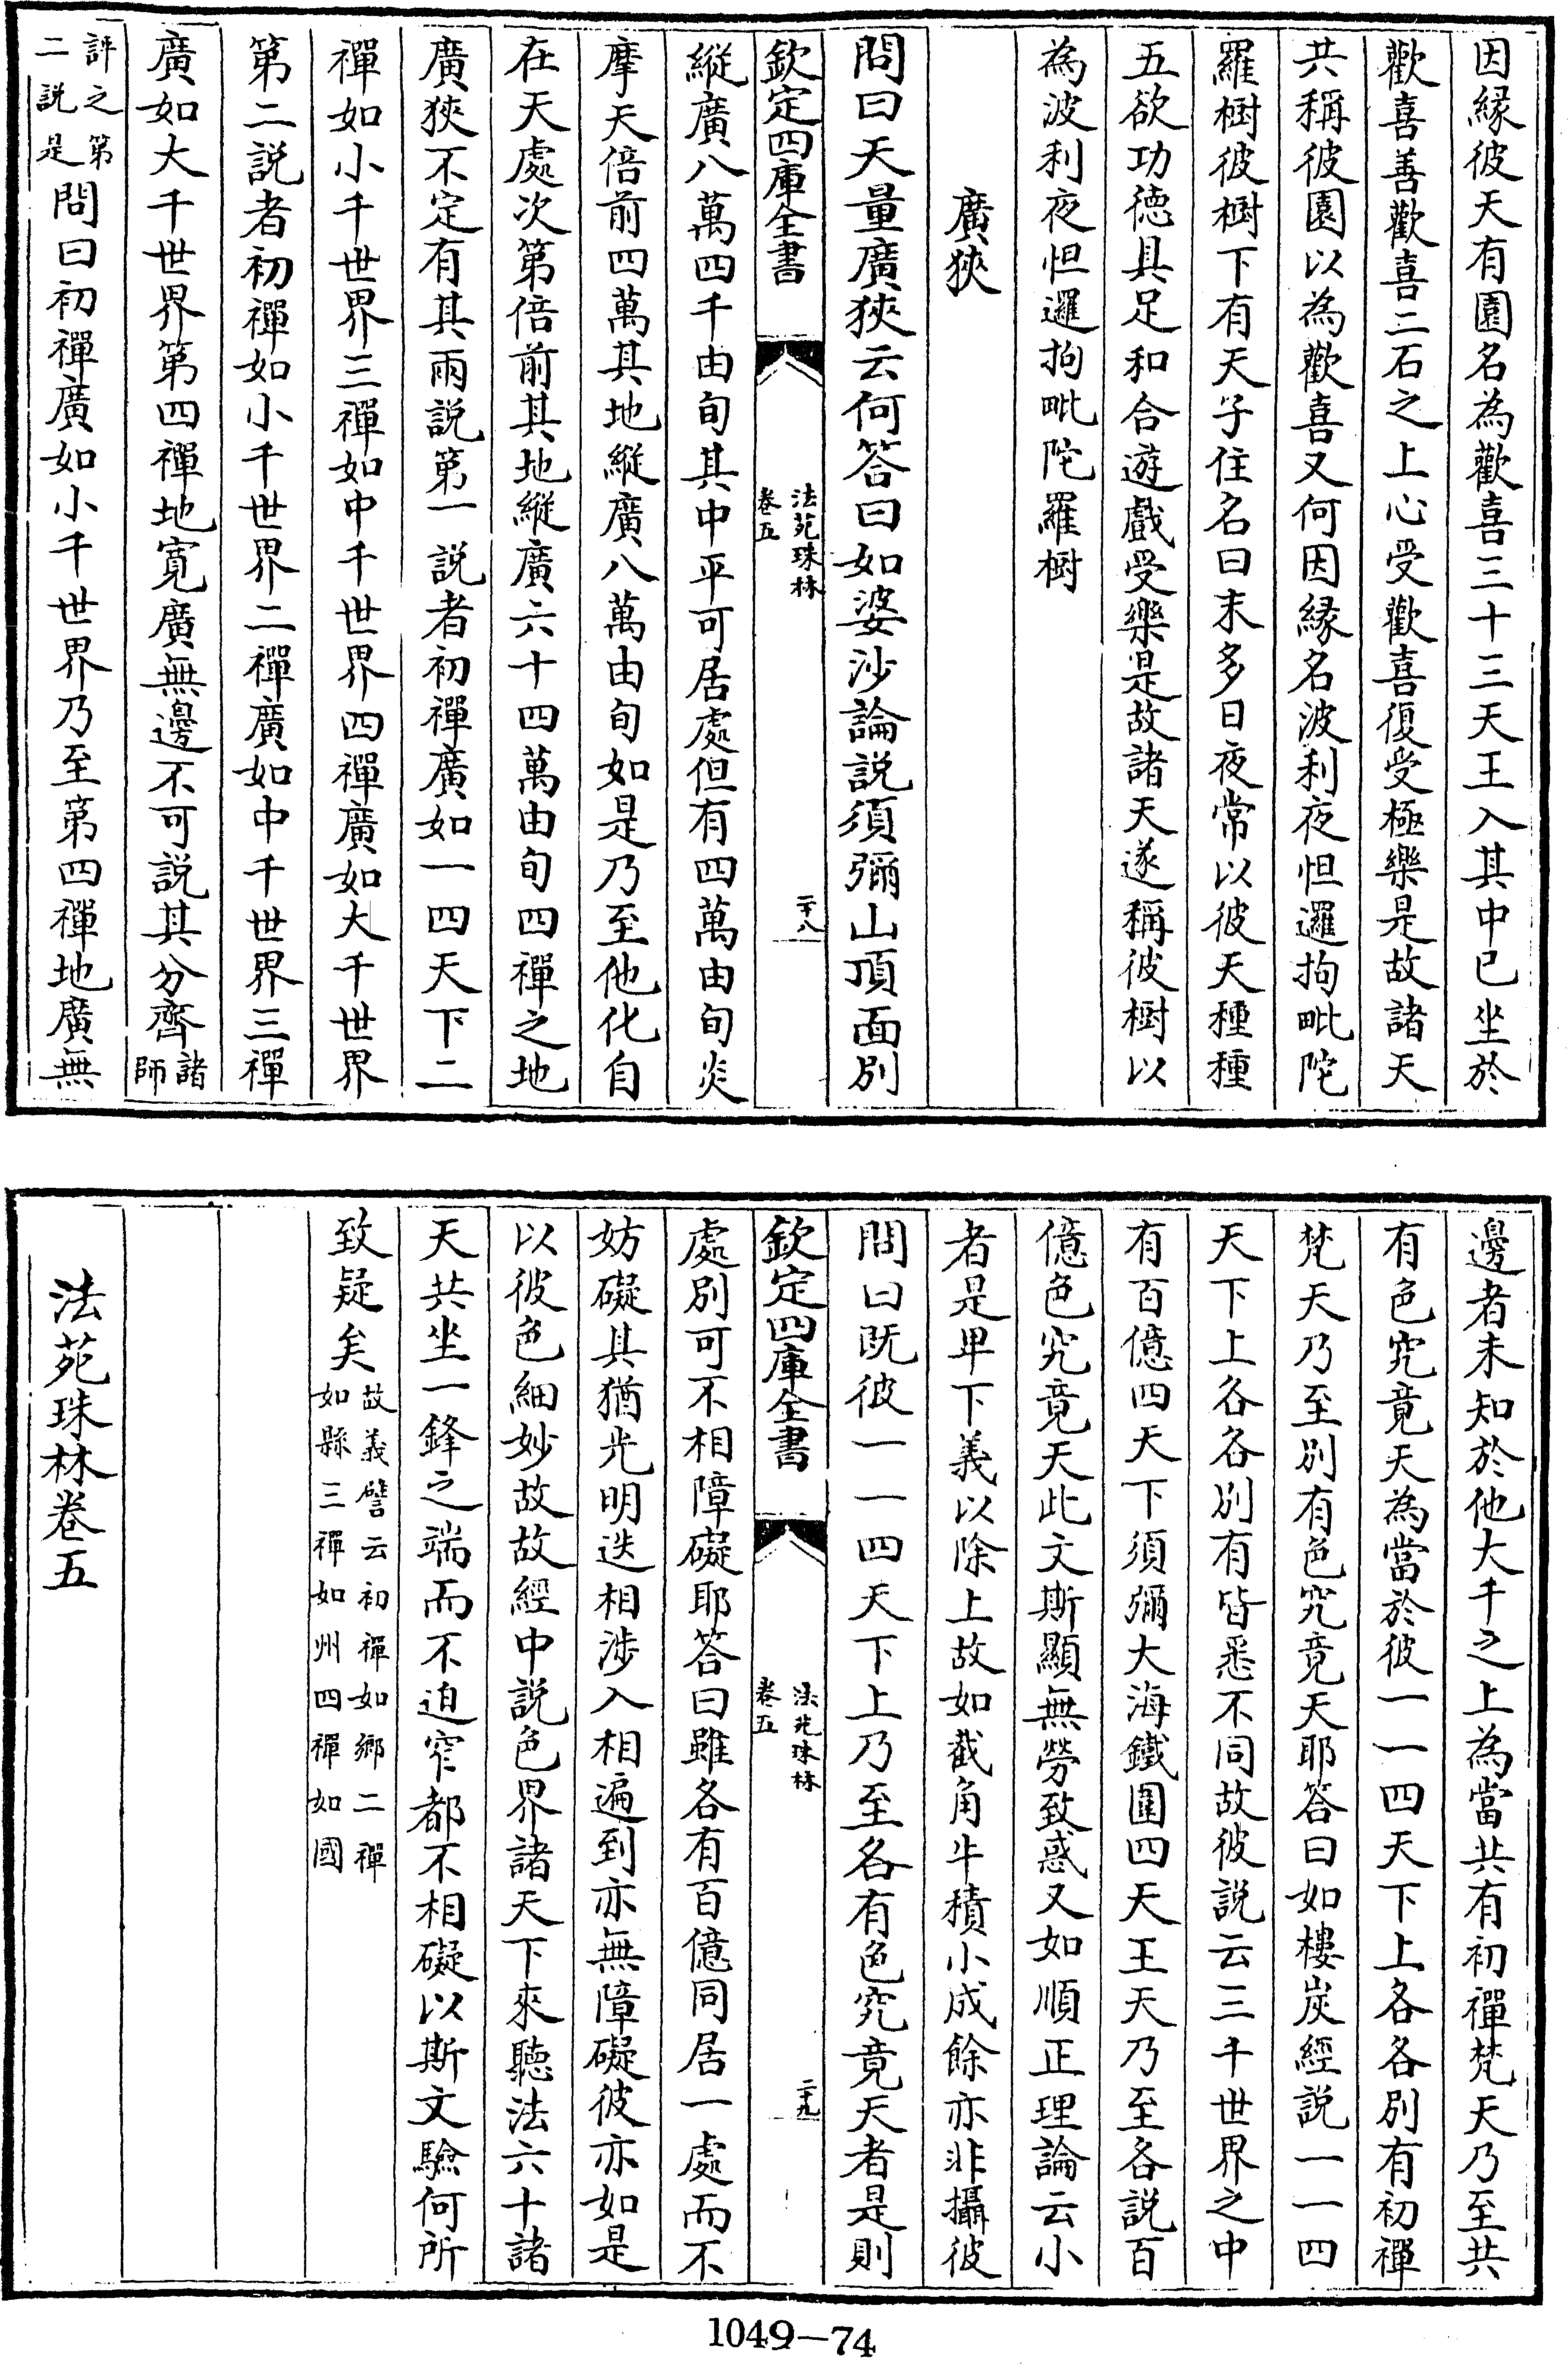 因縁彼天有園名為歡喜三十三天王入其中已坐於
歡喜善歡喜二石之上心受歡喜復受極樂是故諸天
共稱彼園以為歡喜又何因縁名波利夜怛邏拘毗陀
羅樹彼樹下有天子住名曰末多日夜常以彼天種種
五欲功徳具足和合遊戲受樂是故諸天遂稱彼樹以
為波利夜怛邏拘毗陀羅樹
廣狹
問曰天量廣狹云何答曰如婆沙論説須彌山頂面別
欽定四庫全書
法苑珠林
卷五
二十八
縱廣八萬四千由旬其中平可居處但有四萬由旬炎
摩天倍前四萬其地縱廣八萬由旬如是乃至他化自
在天處次第倍前其地縱廣六十四萬由旬四禪之地
廣狹不定有其兩説第一説者初禪廣如一四天下二
禪如小千世界三禪如中千世界四禪廣如大千世界
第二説者初禪如小千世界二禪廣如中千世界三禪
廣如大千世界第四禪地寬廣無邊不可説其分齊諸
師
評之第
二説是問曰初禪廣如小千世界乃至第四禪地廣無
邊者未知於他大千之上為當共有初禪梵天乃至共
有色究竟天為當於彼一一四天下上各各別有初禪
梵天乃至別有色究竟天耶答曰如樓炭經説一一四
天下上各各別有皆悉不同故彼説云三千世界之中
有百億四天下須彌大海鐵圍四天王天乃至各説百
億色究竟天此文斯顯無勞致惑又如順正理論云小
者是卑下義以除上故如截角牛積小成餘亦非攝彼
問曰既彼一一四天下上乃至各有色究竟天者是則
欽定四庫全書
法苑珠林
卷五
二十九
處別可不相障礙耶答曰雖各有百億同居一處而不
妨礙其猶光明迭相涉入相遍到亦無障礙彼亦如是
以彼色細妙故故經中説色界諸天下來聽法六十諸
天共坐一鋒之端而不迫窄都不相礙以斯文驗何所
致疑矣故義譬云初禪如鄉二禪
如縣三禪如州四禪如國
法苑珠林卷五
1049—74